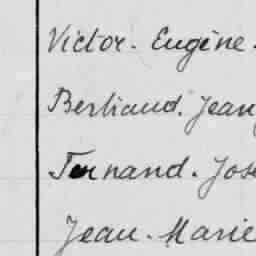 Victor. Eugène.
Bertrand. Jean
Fernand. Jos
Jean. Marie